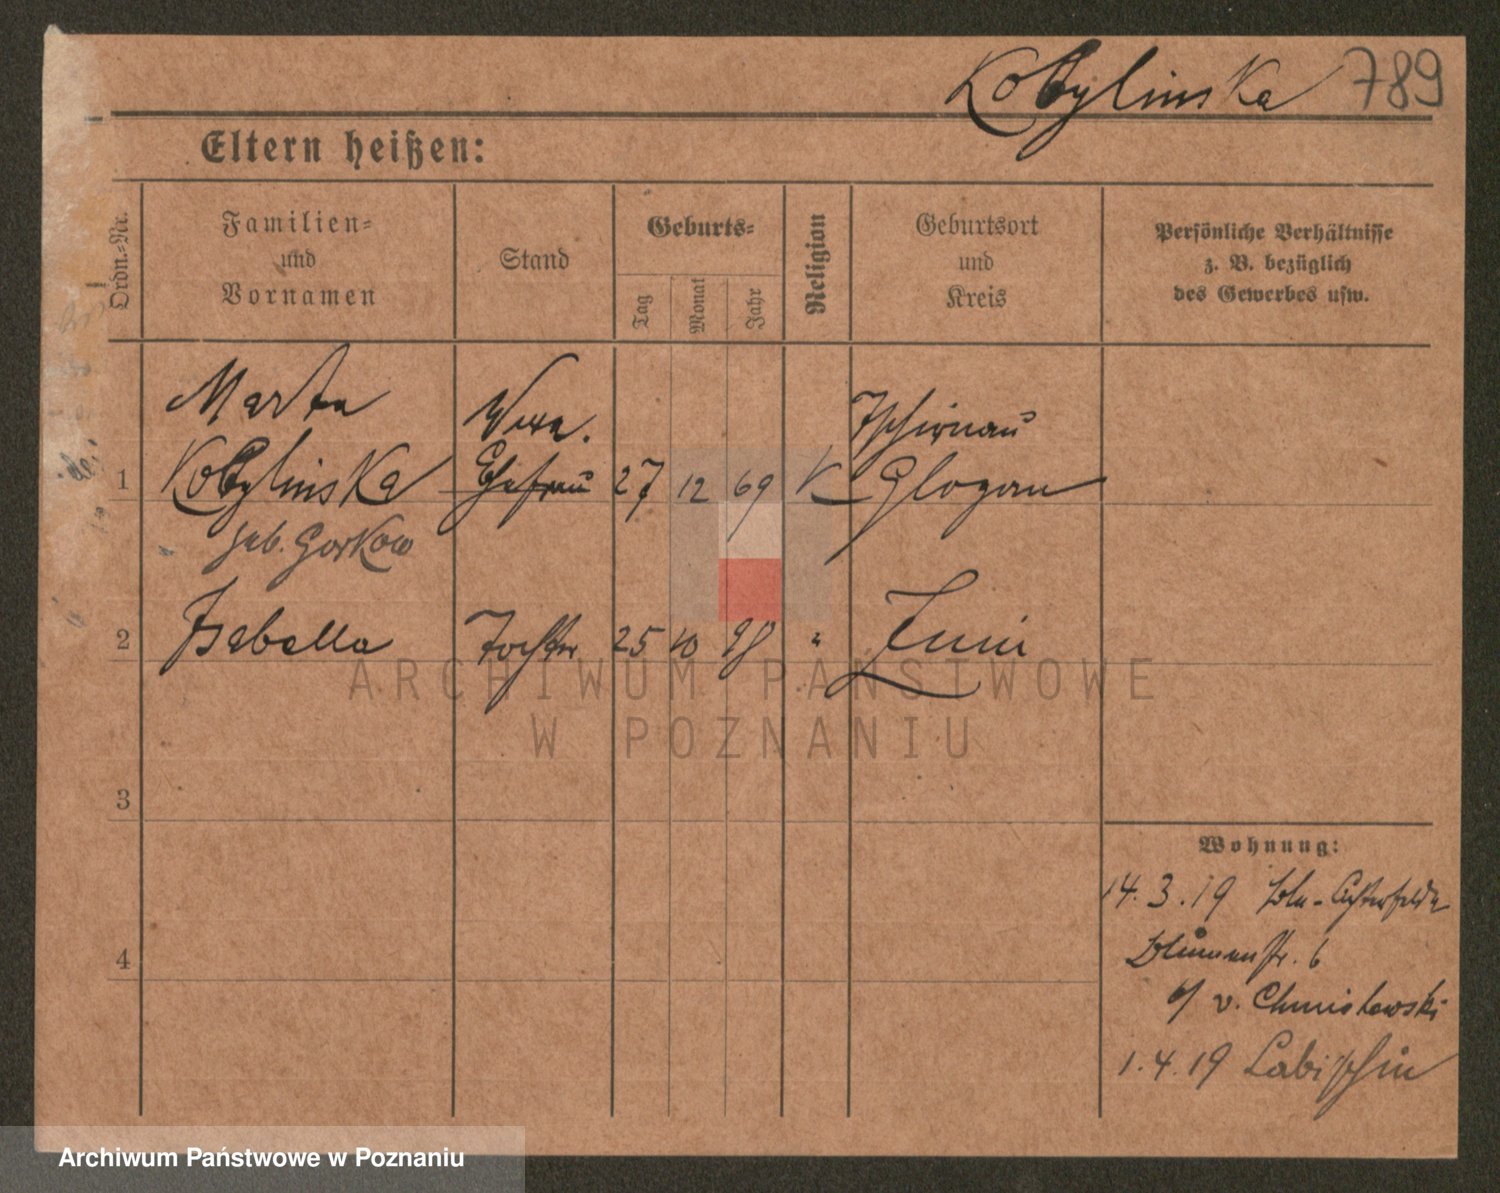 Kobylinska 789
Eltern heißen:
Ordn.-Nr.
Familien-
und
Vornamen
Stand
Geburts-
Tag
Monat
Jahr
Religion
Geburtsort
und
Kreis
Persönliche Verhältnisse
z. B. bezüglich
des Gewerbes usw.
Marta
Wwe.
Tschirnau
1 Kobylinska Ehefrau 27 12 69 K Glogau
geb. Gorkow
2 Isabella Tochter 25 10 98 "
ARCHIWUM PAŃSTWOWE
W POZNANIU
3
4
Wohnung:
14.3.19 Bln-Lichterfelde
Blumenstr. 6
b/ v. Chmielewski
1.4.19 Labischin
Archiwum Państwowe w Poznaniu